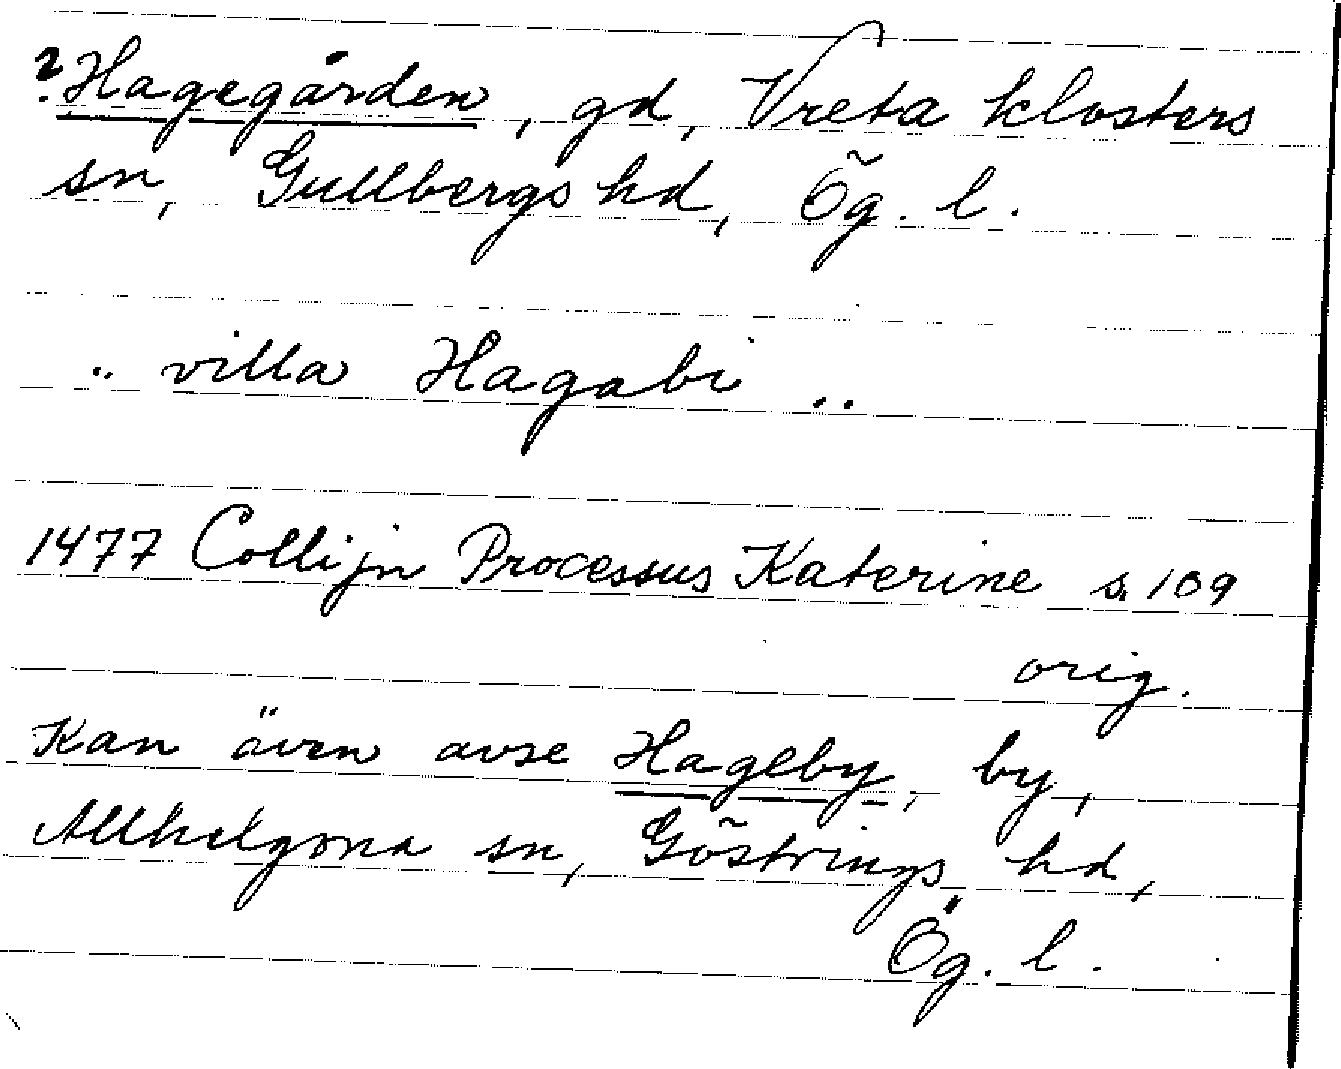 ? Hagegården, gd, Vreta klosters
sn, Gullbergs hd, Ög. l.
.. villa Hagabi ..
1477 Collijn Processus Katerine s. 109
orig.
Kan även avse Hageby, by,
Allhelgona sn, Göstrings hd,
Ög. l.